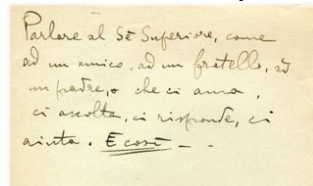 Parlare al Sé Superiore, come
ad un amico, ad un fratello, ad
un padre, o che ci ama,
ci ascolta, ci risponde, ci
aiuta. E così - -